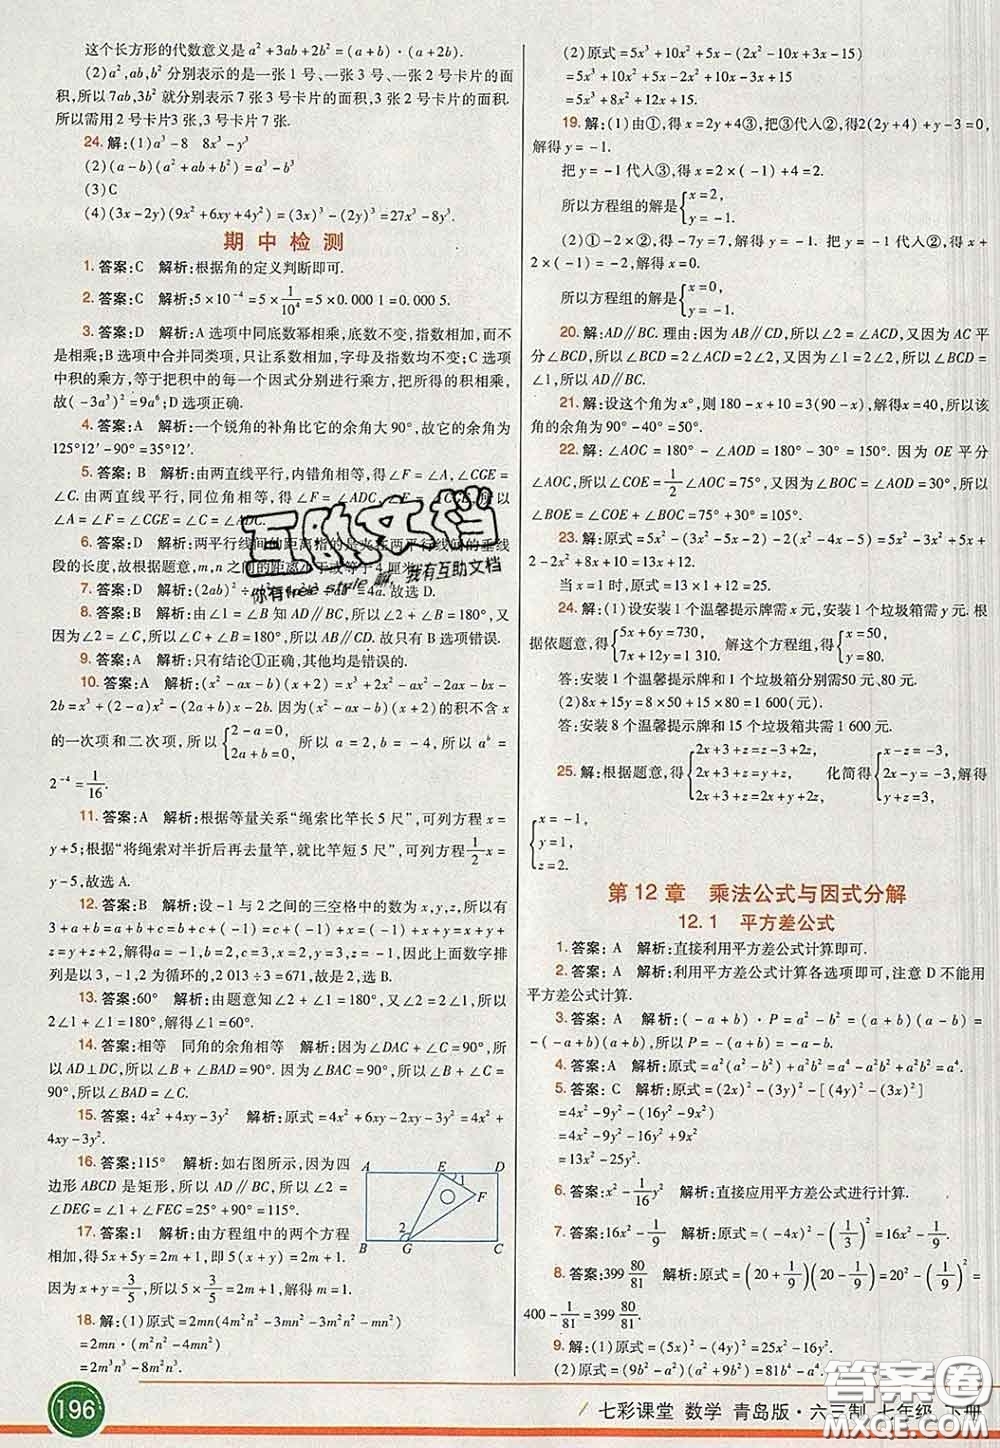 这个长方形的代数意义是 a²+3ab+2b²=(a+b)·(a+2b).
(2)a²,ab,b² 分别表示的是一张 1 号、一张 3 号、一张 2 号卡片的面
积,所以 7ab,3b² 就分别表示 7 张 3 号卡片的面积,3 张 2 号卡片的面积.
所以需用 2 号卡片 3 张,3 号卡片 7 张.
24. 解:(1)a³-8 8x³-y³
(2)(a-b)(a²+ab+b²)=a³-b³
(3)C
(4)(3x-2y)(9x²+6xy+4y²)=(3x)³-(2y)³=27x³-8y³.
期中检测
1. 答案:C 解析:根据角的定义判断即可.
2. 答案:C 解析:5×10⁻⁴=5×1/10⁴=5×0.000 1=0.000 5.
3. 答案:D 解析:A 选项中同底数幂相乘,底数不变,指数相加,而不
是相乘;B 选项中合并同类项,只让系数相加,字母及指数均不变;C 选
项中积的乘方,等于把积中的每一个因式分别进行乘方,把所得的积相乘,
故(-3a³)²=9a⁶;D 选项正确.
4. 答案:A 解析:一个锐角的补角比它的余角大 90°,故它的余角为
125°12′-90°=35°12′.
5. 答案:B 解析:由两直线平行,内错角相等,得∠F=∠A,∠CGE=
∠C.由两直线平行,同位角相等,得∠F=∠ADC,所以
∠A=∠C=∠F=∠CGE=∠ADC.
6. 答案:A 解析:两平行线间的距离指的是夹在两平行线间的垂线
段的长度,故根据题意,m,n 之间的距离小于或等于 4 厘米
7. 答案:D 解析:(2ab)²÷ =4a.故选 D.
8. 答案:B 解析:由∠1=∠B 知 AD∥BC,所以∠2+∠B=180°,又
因为∠2=∠C,所以∠C+∠B=180°,所以 AB∥CD.故只有 B 选项错误.
9. 答案:A 解析:只有结论①正确,其他均是错误的.
10. 答案:A 解析:(x²-ax-b)(x+2)=x³+2x²-ax²-2ax-bx-
2b=x³+(2-a)x²-(2a+b)x-2b.因为(x²-ax-b)(x+2)的积不含 x
的一次项和二次项,所以{2-a=0, 2a+b=0, 所以 a=2,b=-4,所以 aᵇ=
2⁻⁴=1/16.
11. 答案:A 解析:根据等量关系“绳索比竿长 5 尺”,可列方程 x=
y+5;根据“将绳索对半折后再去量竿,就比竿短 5 尺”,可列方程 1/2x=
y-5,故选 A.
12. 答案:B 解析:设-1 与 2 之间的三空格中的数为 x,y,z,所以有
3+a+b=a+b+c=b+c+(-1)=c+(-1)+x=-1+x+y=x+y+
z=y+z+2,解得 a=-1,b=2,c=3,x=2,y=3,z=-1.因此以上面数字
排列是以 3,-1,2 为循环的,2 013÷3=671,故是 2,选 B.
13. 答案:60° 解析:由题意知∠2+∠1=180°,又∠2=2∠1,所以
2∠1+∠1=180°,解得∠1=60°.
14. 答案:相等 同角的余角相等 解析:因为∠DAC+∠C=90°,所
以 AD⊥DC,所以∠ADC=90°,所以∠B+∠C=90°,所以∠B+
∠BAD=90°,所以∠BAD=∠C.
15. 答案:4x²+4xy-3y² 解析:原式=4x²+6xy-2xy-3y²=4x²+
4xy-3y².
16. 答案:115° 解析:如右图所示,因为四
边形 ABCD 是矩形,所以 AD∥BC,所以∠2=
∠DEG=∠1+∠FEG=25°+90°=115°.
A E D 1 F 2 B G C
17. 答案:1 解析:由方程组中的两个方程
相加,得 5x+5y=2m+1,即 5(x+y)=2m+1.
因为 x+y=3/5,所以 5×3/5=2m+1,解得 m=1.
18. 解:(1)原式=2mn(4m²n²-1-3m²n²-4mn+1)
=2mn·(m²n²-4mn)
=2m³n³-8m²n².
(2)原式=5x³+10x²+5x-(2x-3)(x+5)
=5x³+10x²+5x-(2x²-3x+10x-15)
=5x³+8x²-2x+15.
19. 解:(1)由①,得 x=2y+4③,把③代入②,得2(2y+4)+y-3=0,
解得 y=-1.
把 y=-1 代入③,得 x=2×(-1)+4=2.
所以方程组的解是{x=2, y=-1.
(2)①-2×②,得-7y=7,解得 y=-1.把 y=-1 代入②,得 x+
2×(-1)=-2,解得 x=0.
所以方程组的解是{x=0, y=-1.
20. 解:AD∥BC.理由:因为 AB∥CD,所以∠2=∠ACD,又因为 AC 平
分∠BCD,所以∠BCD=2∠ACD=2∠2,又因为∠1=2∠2,所以∠BCD=
∠1,所以 AD∥BC.
21. 解:设这个角为 x°,则 180-x+10=3(90-x),解得 x=40,所以该
角的余角为 90°-40°=50°.
22. 解:∠AOC=180°-∠AOD=180°-30°=150°.因为 OE 平分
∠AOC,所以∠COE=1/2∠AOC=75°,又因为∠BOC=∠AOD=30°,所以
∠BOE=∠BOC+∠COE=75°+30°=105°.
=13x+12.
当 x=1 时,原式=13×1+12=25.
24. 解:(1)设安装 1 个温馨提示牌需 x 元,安装 1 个垃圾箱需 y 元.根
据依题意,得{5x+6y=730, 7x+12y=1 310. 解这个方程组,得{x=50, y=80.
答:安装 1 个温馨提示牌和 1 个垃圾箱分别需50 元、80 元.
(2)8x+15y=8×50+15×80=1 600(元).
答:安装 8 个温馨提示牌和 15 个垃圾箱共需 1 600 元.
25. 解:根据题意,得{2x+3+z=-3+2z, 2x+3+z=2y+z+2z, 2x+3+z=x+2+y+2z, 化简得{x-z=-3, 2x-y=-3, y+z=3, 解得
{x=-1, y=1, z=2.
第 12 章 乘法公式与因式分解
12.1 平方差公式
1. 答案: A 解析:直接利用平方差公式计算即可.
2. 答案: A 解析:利用平方差公式计算各选项即可,注意 D 不能用
平方差公式计算.
3. 答案: A 解析:(-a+b)·P=a²-b²=(a-b)(a+b)=
-(-a+b)(a+b),所以 P=-(a+b)=-a-b.
4. 答案: A 解析:原式=a²b²-a²b²+a²+a⁴=a²+a⁴.
5. 答案: C 解析:原式=(2x)²-(3y)²-[(4y)²-(3x)²]
=4x²-9y²-(16y²-9x²)
=4x²-9y²-16y²+9x²
=13x²-25y².
6. 答案:x²-1/16y² 解析:直接应用平方差公式进行计算.
7. 答案:16x²-1/9 解析:原式=(-4x)²-(1/3)²=16x²-1/9.
8. 答案:399 80/81 解析:原式=(20+1/9)(20-1/9)=20²-(1/9)²=
400-1/81=399 80/81.
9. 解:(1)原式=(5x)²-(4y)²=25x²-16y².
196
七彩课堂 数学 青岛版·六三制 七年级 下册
互助文档
答案圈
MXQE.COM